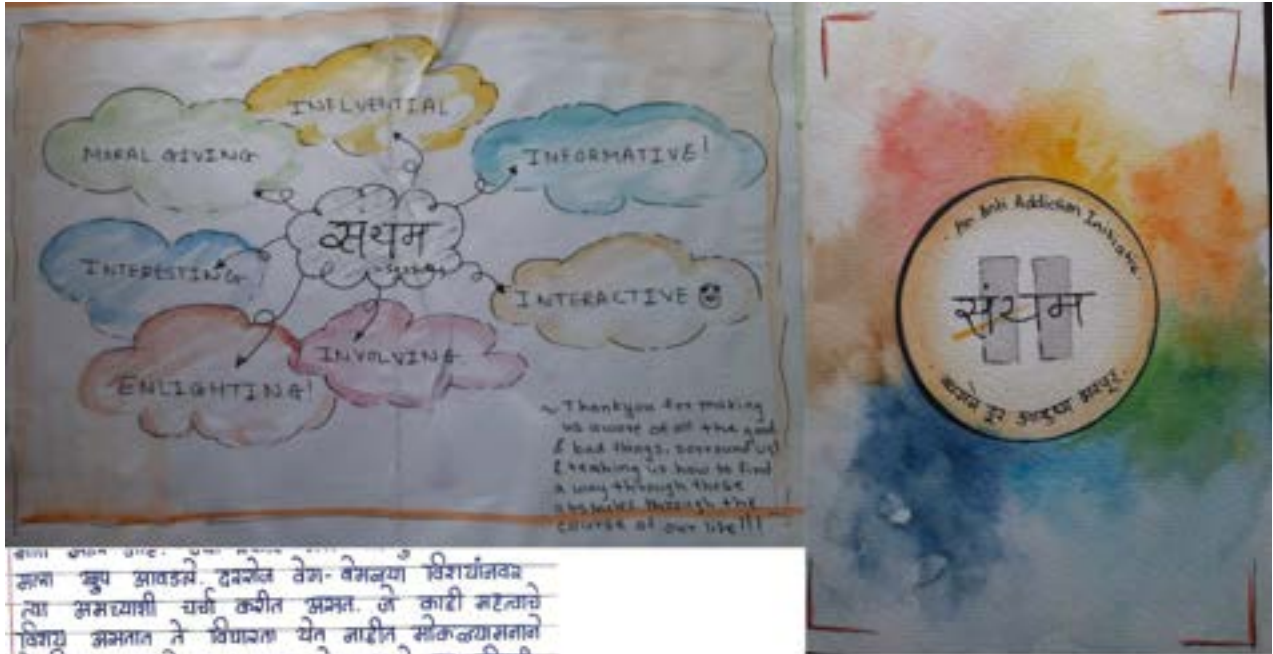 INFLUENTIAL
MORAL GIVING
INFORMATIVE!
संयम
INTERESTING
INTERACTIVE
INVOLVING
ENLIGHTING!
~ Thankyou for making
us aware of all the good
& bad things, sorround us!
& teaching us how to find
a way through these
obstacles through the
course of our life!!!
An Anti Addiction Initiative
संयम
व्यसन दूर आयुष्य भरपूर.
मला खुप आवडले. दररोज वेग-वेगळ्या विशयांनवर
त्या अमच्याशी चर्चा करीत असत. जे काही महत्वाचे
विशय असतात ते विचारता येत नाहीत मोकळ्यामनाने